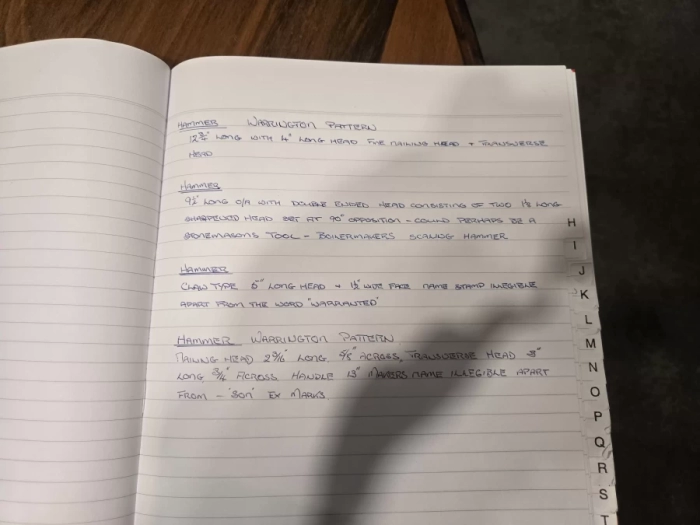 HAMMER WARRINGTON PATTERN
12¾" LONG WITH 4" LONG HEAD FINE NAILING HEAD + TRANSVERSE
HEAD
HAMMER
9½" LONG O/A WITH DOUBLE ENDED HEAD CONSISTING OF TWO LONG
SHARPENED HEAD SET AT 90° OPPOSITION – COULD PERHAPS BE A
STONEMASONS TOOL – BOILERMAKERS SCALING HAMMER
HAMMER
CLAW TYPE 6" LONG HEAD + WIDE FACE NAME STAMP ILLEGIBLE
APART FROM THE WORD "WARRANTED"
HAMMER WARRINGTON PATTERN
NAILING HEAD LONG ACROSS, TRANSVERSE HEAD
LONG ACROSS HANDLE 13" MAKERS NAME ILLEGIBLE APART
FROM – 'SON' EX MARKS
H
I
J
K
L
M
N
O
P
Q
R
S
T